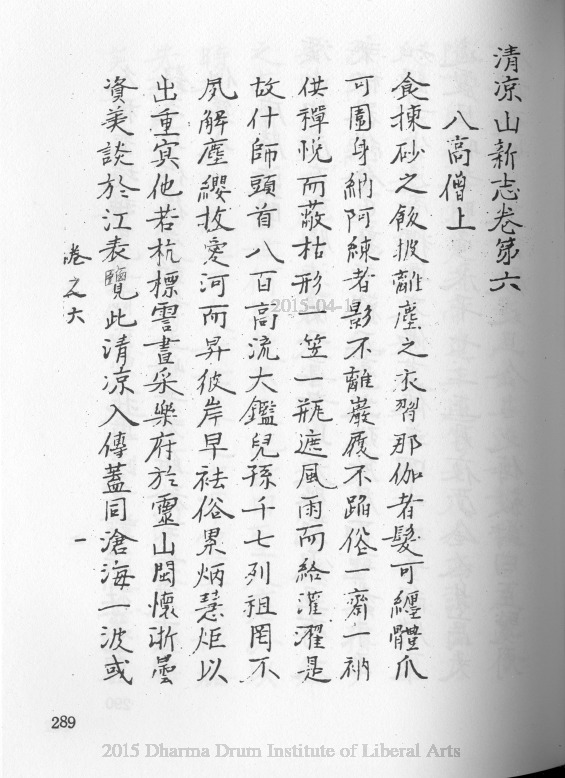 清凉山新志卷第六
八高僧上
食揀砂之飲披離塵之衣習那伽者髮可纏體爪
可園身納阿練者影不離巖履不踏俗一齋一衲
供禪悅而蔽枯形一笠一瓶遮風雨而給灌濯是
故什師頭首八百高流大鑑兒孫千七列祖罔不
夙解塵纓拔愛河而昇彼岸早袪俗累炳慧炬以
出重冥他若杭標雲晝采樂府於靈山閩懷浙曇
資美談於江表覽此清凉入傳蓋同滄海一波或
卷之六
一
289
2015-04-17
2015 Dharma Drum Institute of Liberal Arts